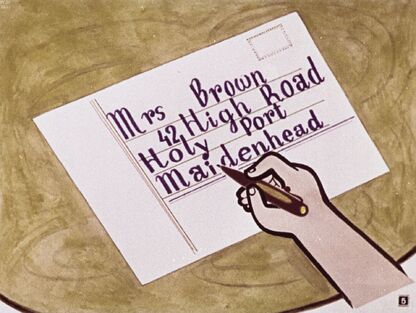 Mrs Brown
42 High Road
Holy Port
Maidenhead
5